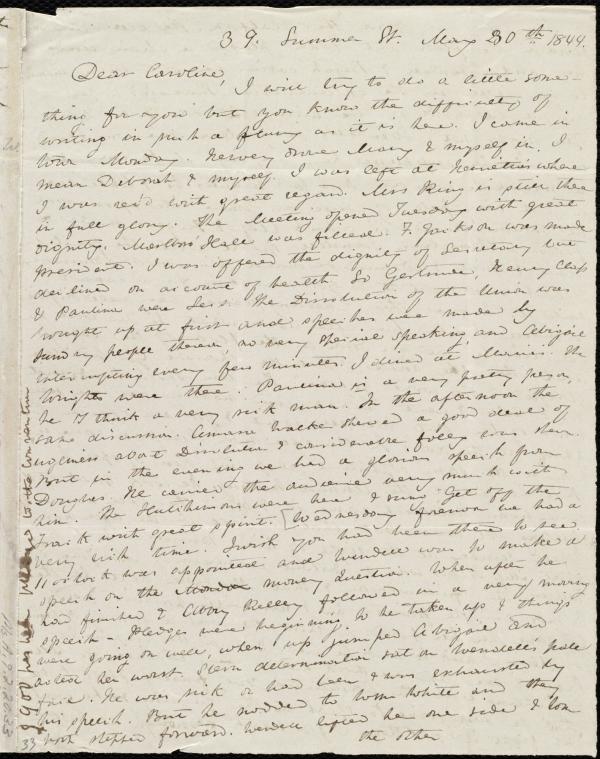 39. Summer St. May 30th 1844.
Dear Caroline,
I will try to do a little some-
thing for you but you know the difficulty of
writing in such a flurry as it is here. I came in
town Monday. Hervey drove Mary & myself in. I
mean Deborah & myself. I was left at Henrietta's where
I was rec'd with great regard. Miss King is sick there
in full glory. The Meeting opened Tuesday with great
dignity. Marlboro Hall was filled. F. Jackson was made
President. I was offered the dignity of Secretary but
declined on account of health So Henry Clap
& Paulina were Secs. The Dissolution of the Union was
brought up at first and speeches were made by
sundry people thereon, no very special speaking and Abigail
interrupting every few minutes. I dined at Maria's. The
Wrights were there. Paulina is a very pretty person,
he I think a very sick man. In the afternoon the
same discussion. Amasa Walker showed a good deal of
ugliness about Dissolution & considerable folly was shown.
But in the evening we had a glorious speech from
Douglas. He carried the audience very much with
him. The Hutchinsons were here & sung Get off the
Track with great spirit. [Wednesday forenoon we had a
very rich time. I wish you had been there to see.
11 o'clock was appointed and Wendell was to make a
speech on the money question. When after he
had finished & Abby Kelley followed in a very moving
speech - Pledges were beginning to be taken up & things
were going on well, when up jumped Abigail and
with her worst stern determination sat on Wendell's pale
face. He was sick or had been & was exhausted by
his speech. But he nodded to Wm White and they
both stepped forward. Wendell lifted her one side & Wm
the other
33